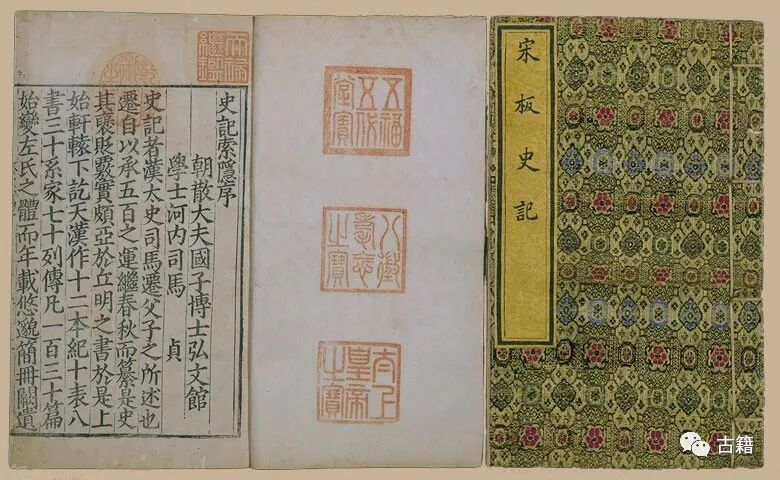 宋板史記
五福
五代
堂寶
八徵
耄念
之寶
太上
皇帝
之寶
天祿
繼鑑
史記索隱序
朝散大夫國子博士弘文館
學士河内司馬 貞
史記者漢太史司馬遷父子之所述也
遷自以承五百之運繼春秋而纂是史
其襃貶覈實頗亞於丘明之書於是上
始軒轅下訖天漢作十二本紀十表八
書三十系家七十列傳凡一百三十篇
始變左氏之體而年載悠邈簡冊闕遺
古籍